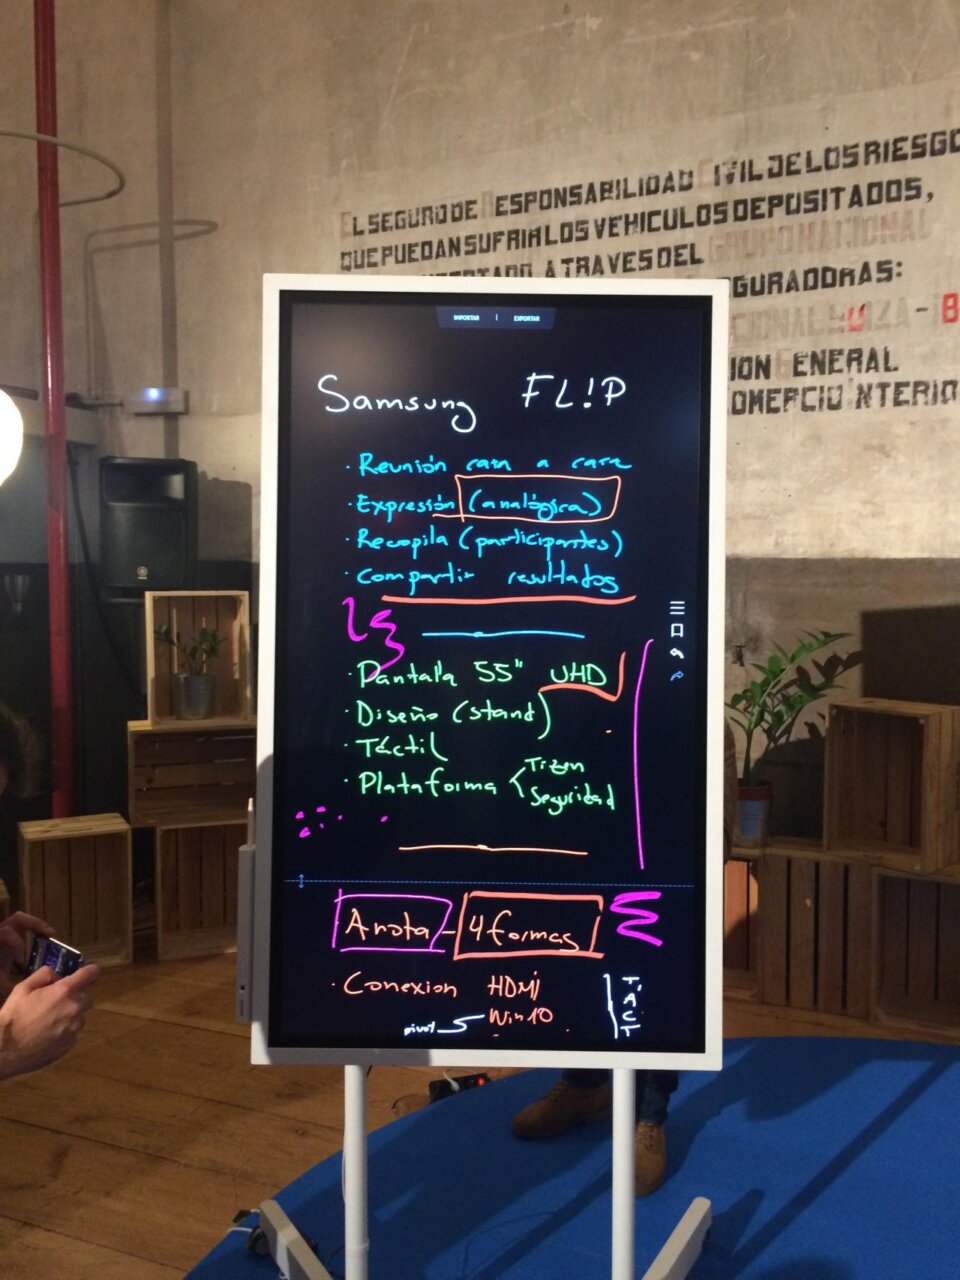 EL SEGURO DE RESPONSABILIDAD CIVIL DE LOS RIESGO
QUE PUEDAN SUFRIR LOS VEHICULOS DEPOSITADOS,
A TRAVES DEL GRUPO NACIONAL
GURADORAS:
ION GENERAL
OMERCIO INTERIO
IMPORTAR | EXPORTAR
Samsung FL!P
· Reunión cara a cara
· Expresión (analógica)
· Recopila (participantes)
· Compartir resultados
· Pantalla 55" UHD
· Diseño (stand)
· Táctil
· Plataforma < Tizen
Seguridad
Anota - 4 formas
· Conexion HDMI
Win10
TÁCT